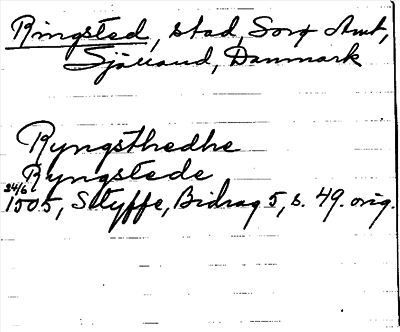 Ringsted, stad, Sorø Amt,
Själland, Danmark
Ryngsthedhe
Ryngstede
24/6
1505, Styffe, Bidrag 5, s. 49. orig.